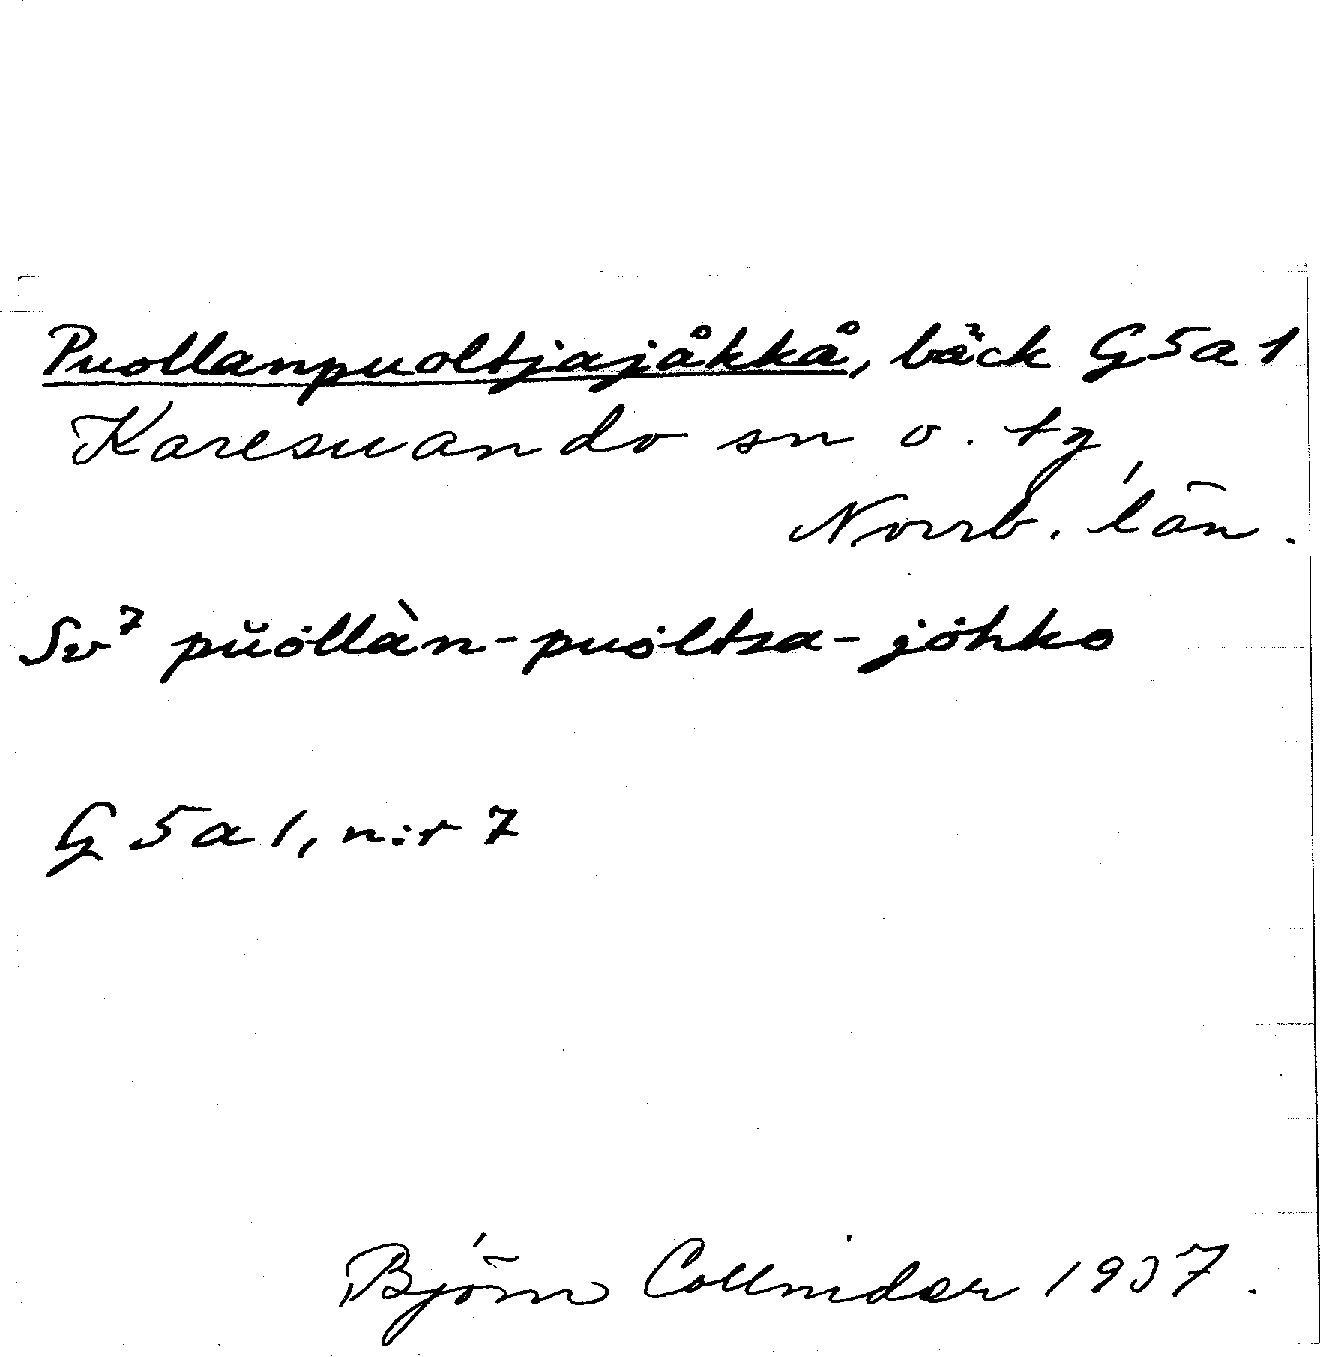 Puollanpuoltjajåkkå, bäck G5a1
Karesuando sn o. tg,
Norrb. län.
Sv⁷ pŭȯllàn-puȯltsa-jȯhko
G 5 a 1, n:r 7
Björn Collinder 1937.